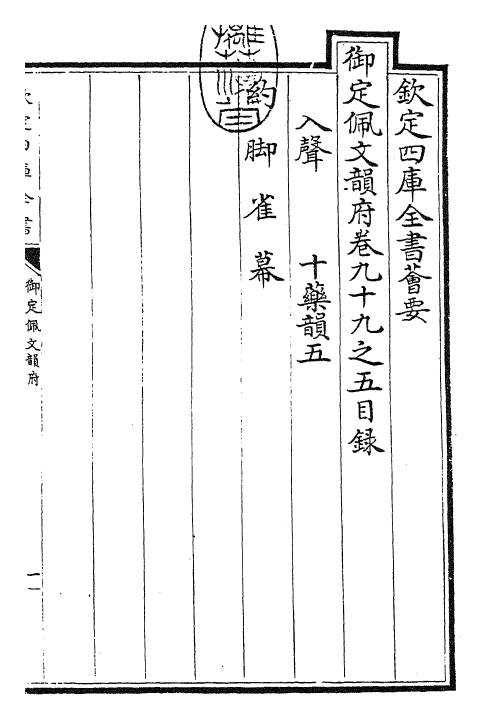 欽定四庫全書薈要
御定佩文韻府卷九十九之五目録
入聲　十藥韻五
約脚雀幕
御定佩文韻府
一